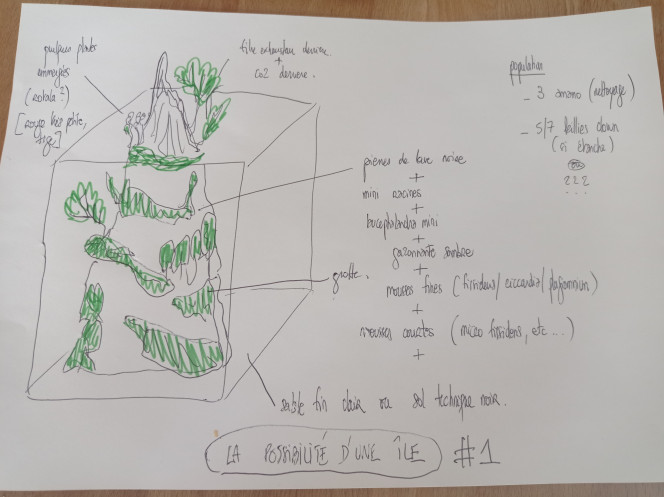 quelques plantes
immergées
(rotala ?)
[rouge très petite,
tige]
filtre exhausteur derrière
+
CO2 derrière.
population
- 3 amano (nettoyage)
- 5/7 killies clown
(si étanche)
ou
???
...
pierres de lave noire
+
mini racines
+
bucephalandra mini
+
gazonnante sombre
+
grotte.
mousses fines (fissidens/riccardia/plagiomnium)
+
mousses courtes (micro fissidens, etc...)
+
sable fin clair ou sol technique noir.
LA POSSIBILITÉ D'UNE ÎLE #1